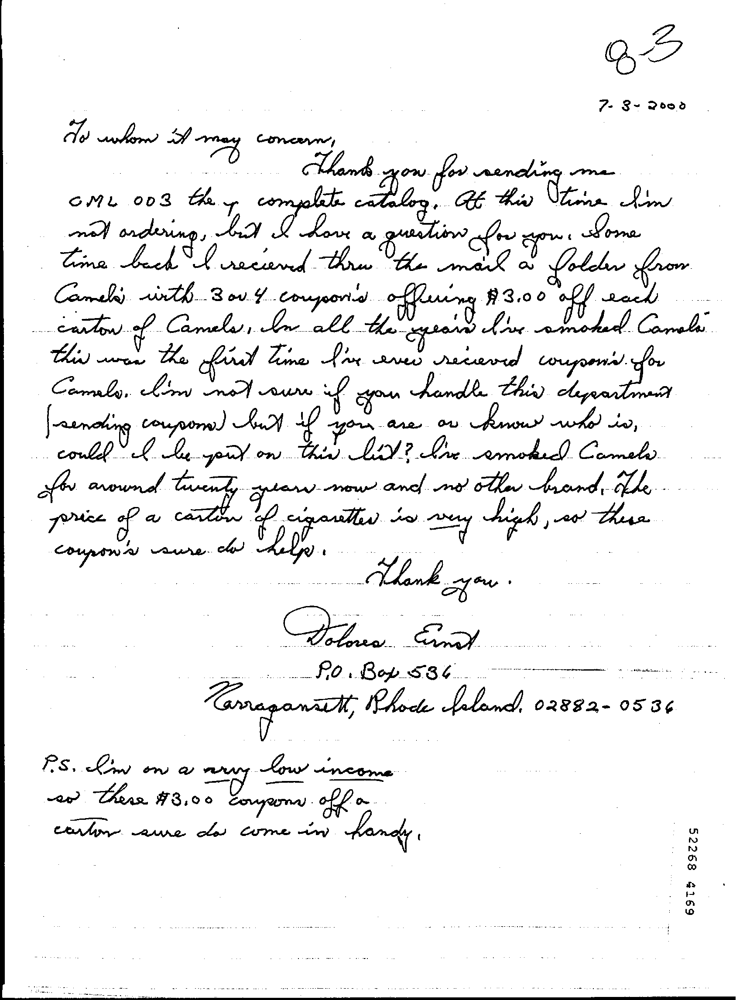 8-3
7-3-2000
To whom it may concern,
Thank you for sending me
CML 003 the complete catalog. At this time I'm
not ordering, but I have a question for you. Some
time back I recieved thru the mail a folder from
Camels with 3 or 4 coupon's offering $3.00 off each
carton of Camels. In all the years I've smoked Camels
this was the first time I've ever recieved coupon's for
Camels. I'm not sure if you handle this department
(sending coupons) but if you are or know who is,
could I be put on this list? I've smoked Camels
for around twenty years now and no other brand. The
price of a carton of cigarettes is very high, so these
coupon's sure do help.
Thank you.
Dolores Ernst
P.O. Box 536
Narragansett, Rhode Island. 02882-0536
P.S. I'm on a very low income
so these $3.00 coupons off a
carton sure do come in handy.
52268 4169